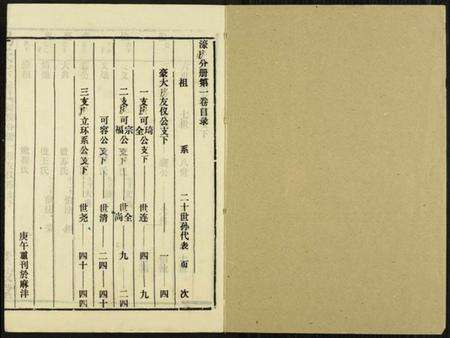 濠房分册第一卷目录
祖 系 二十世孙代表 页 次
豪大房友仪公支下 一 四
一支房可琦公支下 世连 四 九
全
二支房可宗公支下 世全 九 二四
福 尚
可容公支下 世清 二四 四十
三支房立环系公支下 世尧 四十 四四
庚午重刊於麻沣